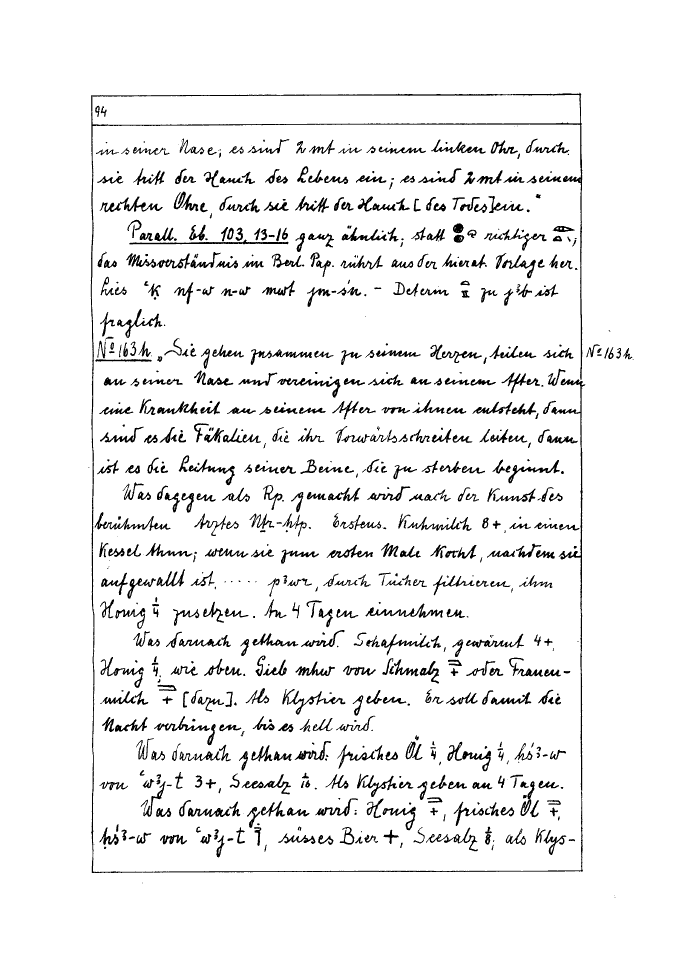 94
in seiner Nase; es sind 2 mt in seinem linken Ohr, durch
sie tritt der Hauch des Lebens ein; es sind 2 mt in seinem
rechten Ohre, durch sie tritt der Hauch [des Todes] ein."
Parall. Eb. 103, 13-16 ganz ähnlich; statt richtiger
das Missverständnis im Berl. Pap. rührt aus der hierat. Vorlage her.
Lies ꜥḳ nf-w n-w mwt jm-sn. – Determ zu jꜣb ist
fraglich.
No 163h. „Sie gehen zusammen zu seinem Herzen, teilen sich No 163h.
an seiner Nase und vereinigen sich an seinem After. Wenn
eine Krankheit an seinem After von ihnen entsteht, dann
sind es die Fäkalien, die ihr Vorwärtsschreiten leiten, dann
ist es die Leitung seiner Beine, die zu sterben beginnt.
Was dagegen als Rp. gemacht wird nach der Kunst des
berühmten Arztes Nṯr-ḥtp. Erstens. Kuhmilch 8+, in einen
Kessel thun; wenn sie zum ersten Male kocht, nachdem sie
aufgewallt ist, ····· pꜣwr, durch Tücher filtrieren, ihm
Honig ¼ zusetzen. An 4 Tagen einnehmen.
Was darnach gethan wird. Schafmilch, gewärmt 4+,
Honig ¼, wie oben. Gieb mhw von Schmalz + oder Frauen-
milch + [dazu]. Als Klystier geben. Er soll damit die
Nacht verbringen, bis es hell wird.
Was darnach gethan wird: frisches Öl ¼, Honig ¼, ḥsꜣ-w
von ꜥwꜣj-t 3+, Seesalz 1/16. Als Klystier geben an 4 Tagen.
Was darnach gethan wird: Honig +, frisches Öl +,
ḥsꜣ-w von ꜥwꜣj-t, süsses Bier +, Seesalz ⅛; als Klys-